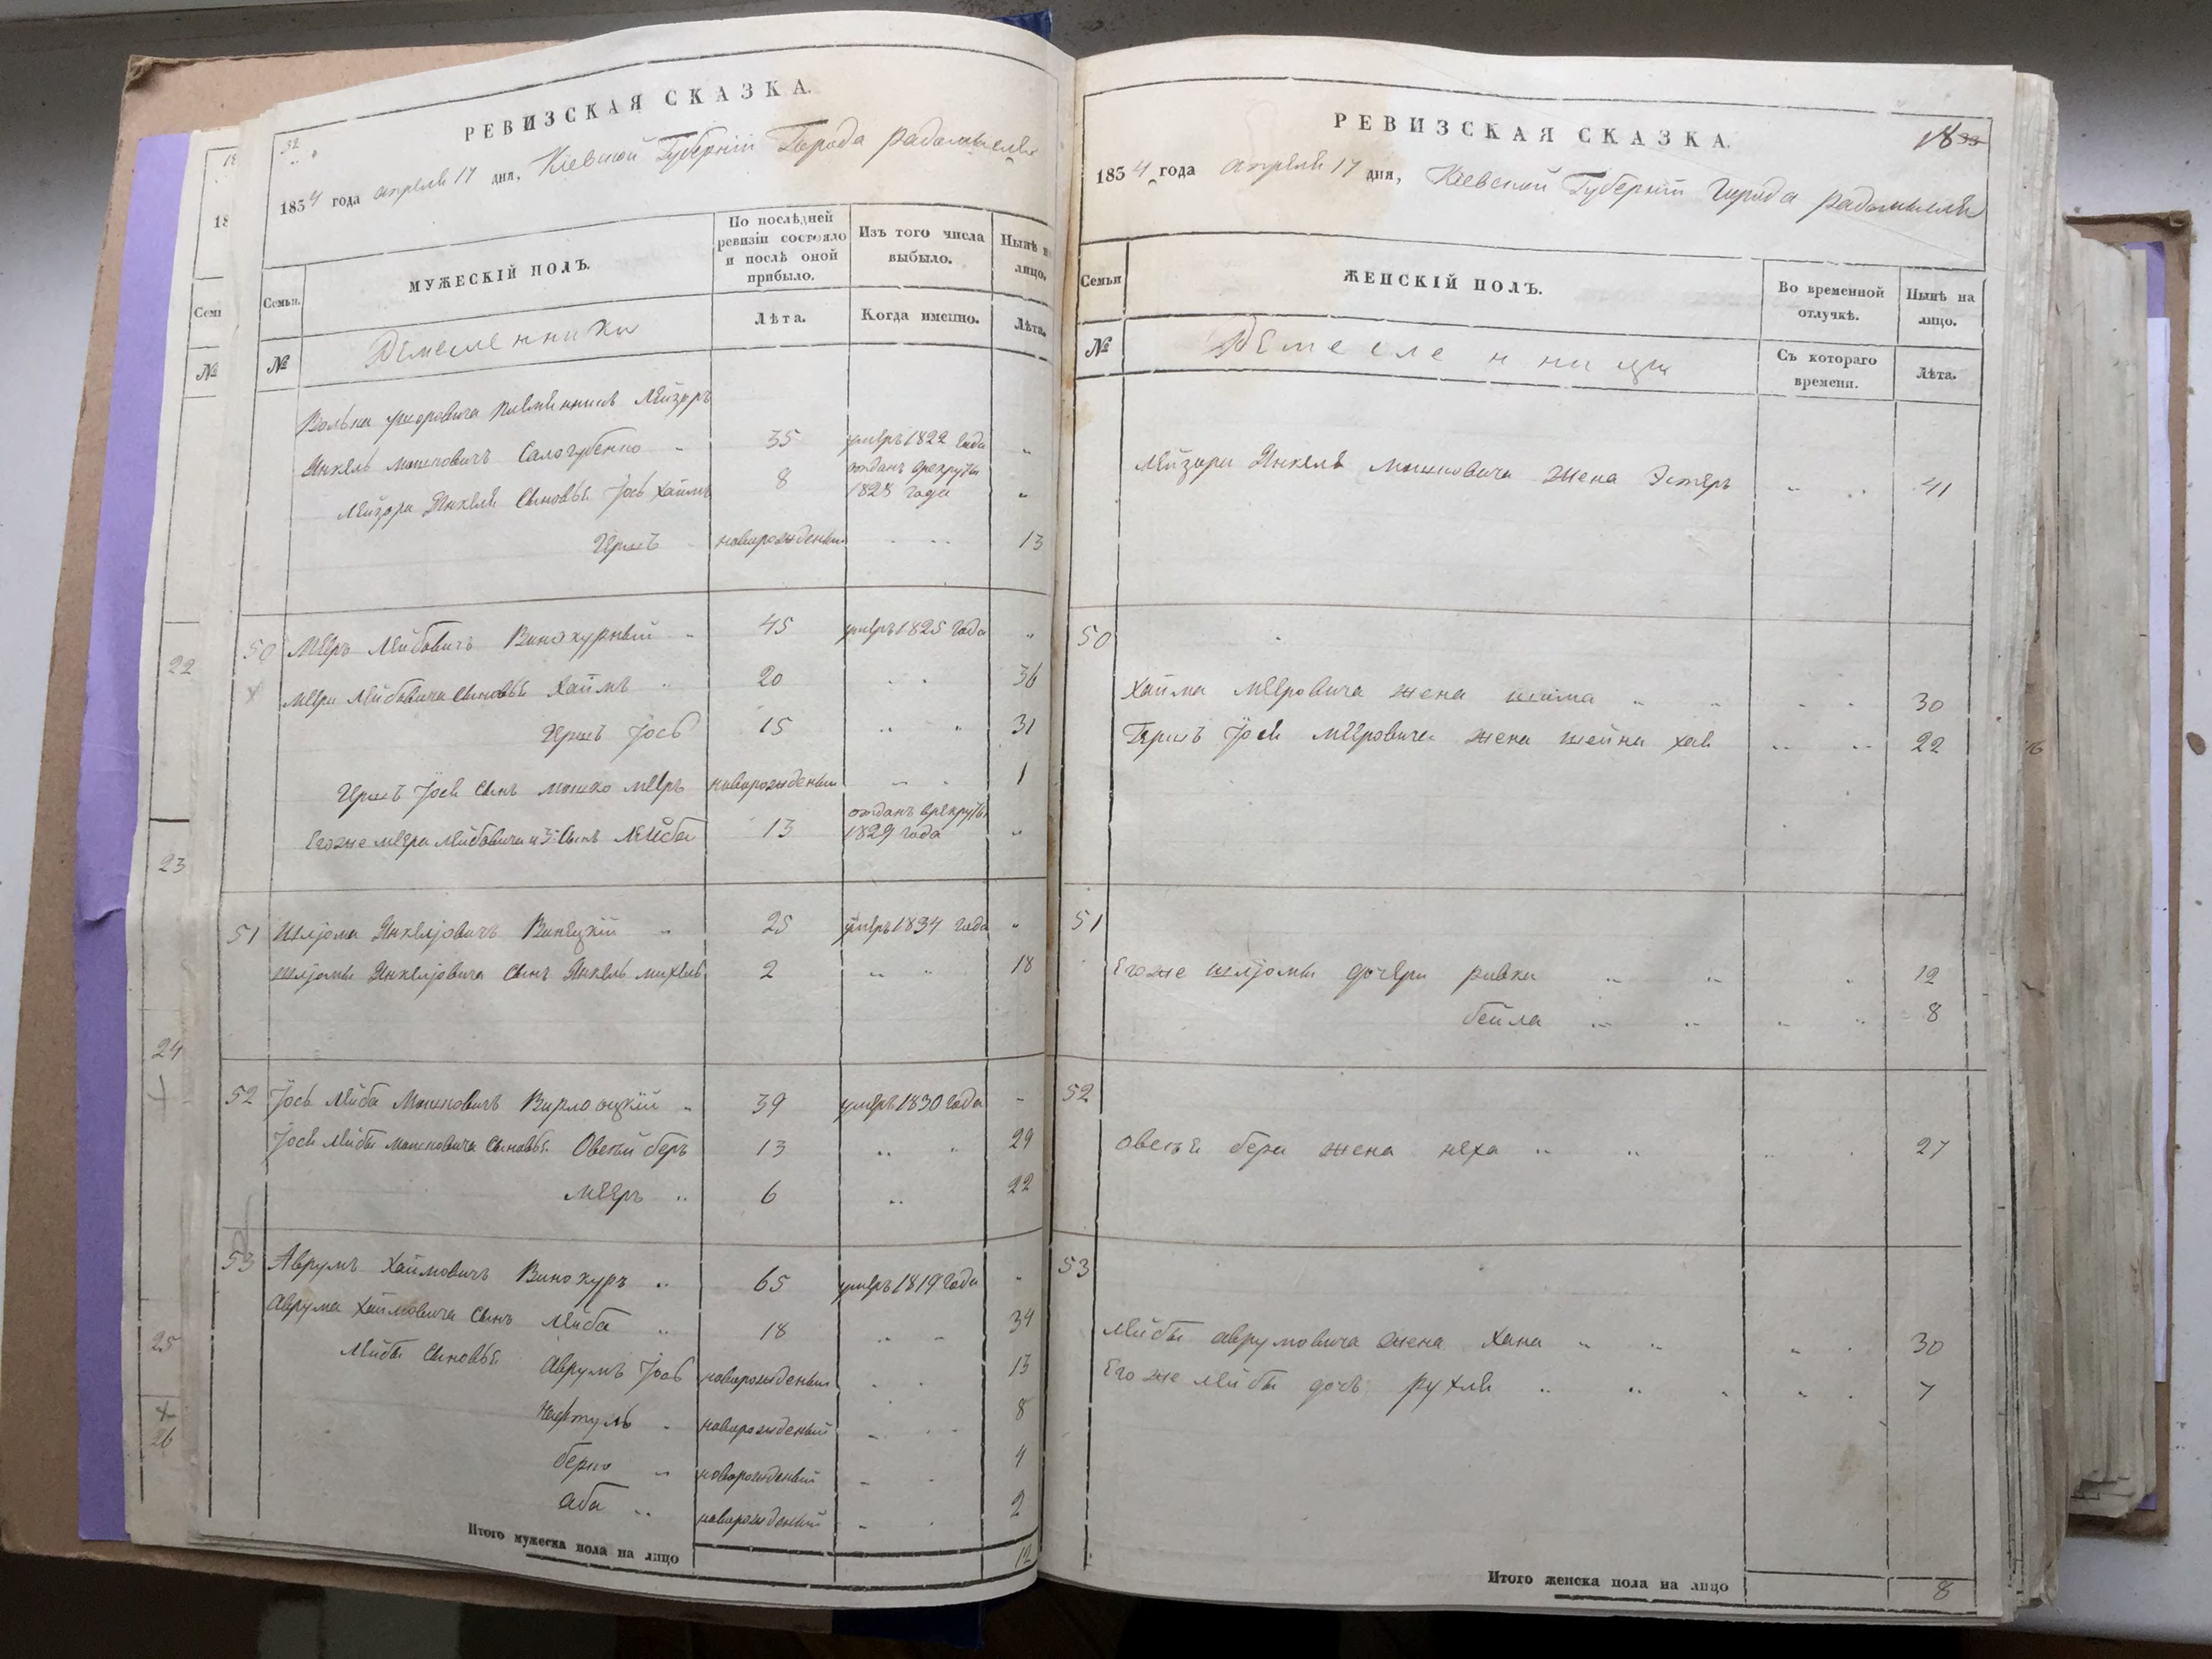 32
РЕВИЗСКАЯ СКАЗКА.
1834 года апреля 17 дня, Кіевской Губерніи Города Радомысля
Семьи.
МУЖЕСКІЙ ПОЛЪ.
По послѣдней ревизіи состояло и послѣ оной прибыло.
Изъ того числа выбыло.
Нынѣ на лицо.
№
Ремесленники
Лѣта.
Когда именно.
Лѣта.
племенникъ Лейзоръ
Янкель Мошковичъ 35 умеръ 1822 года „
Лейзора Янкеля сыновья Іось Хаимъ 8 отданъ врекруты 1828 года „
Гершъ новорожденый 13
50 Мееръ Лейбовичъ Винокурный 45 умеръ 1825 года „
Меера Лейбовича сыновья Хаимъ 20 36
Гершъ Іось 15 31
Гершъ Іося сынъ Мошко Мееръ новорожденый 1
Егоже Меера Лейбовича и 3й сынъ Лейба 13 отданъ врекруты 1829 года „
51 Шліома Янкеліовичъ Винецкій 25 умеръ 1834 года „
Шліомы Янкеліовича сынъ Янкель Михель 2 18
52 Іось Лейба Мошковичъ 39 умеръ 1830 года „
Іося Лейбы Мошковича сыновья Овсей беръ 13 29
Мееръ 6 22
53 Аврумъ Хаимовичъ Винокуръ 65 умеръ 1819 года „
Аврума Хаимовича сынъ Лейба 18 34
Лейбы сыновья Аврумъ Іось новорожденый 13
Нафтуль новорожденый 8
берко новорожденый 4
аба новорожденый 2
Итого мужеска пола на лицо 12
22
23
24
25
26
РЕВИЗСКАЯ СКАЗКА.
18
33
1834 года апреля 17 дня, Кіевской Губерніи Города Радомысля
Семьи
ЖЕНСКІЙ ПОЛЪ.
Во временной отлучкѣ.
Нынѣ на лицо.
№
Ремесленници
Съ котораго времени.
Лѣта.
Лейзора Янкеля Мошковича жена Эстеръ 41
50
Хаима Мееровича жена шима 30
Гершъ Іося Мееровича жена шейна хая 22
51
Егоже шліомы дочери ривка 12
бейла 8
52
Овсея бера жена неха 27
53
Лейбы аврумовича жена Хана 30
Егоже Лейбы дочь рухля 7
Итого женска пола на лицо 8